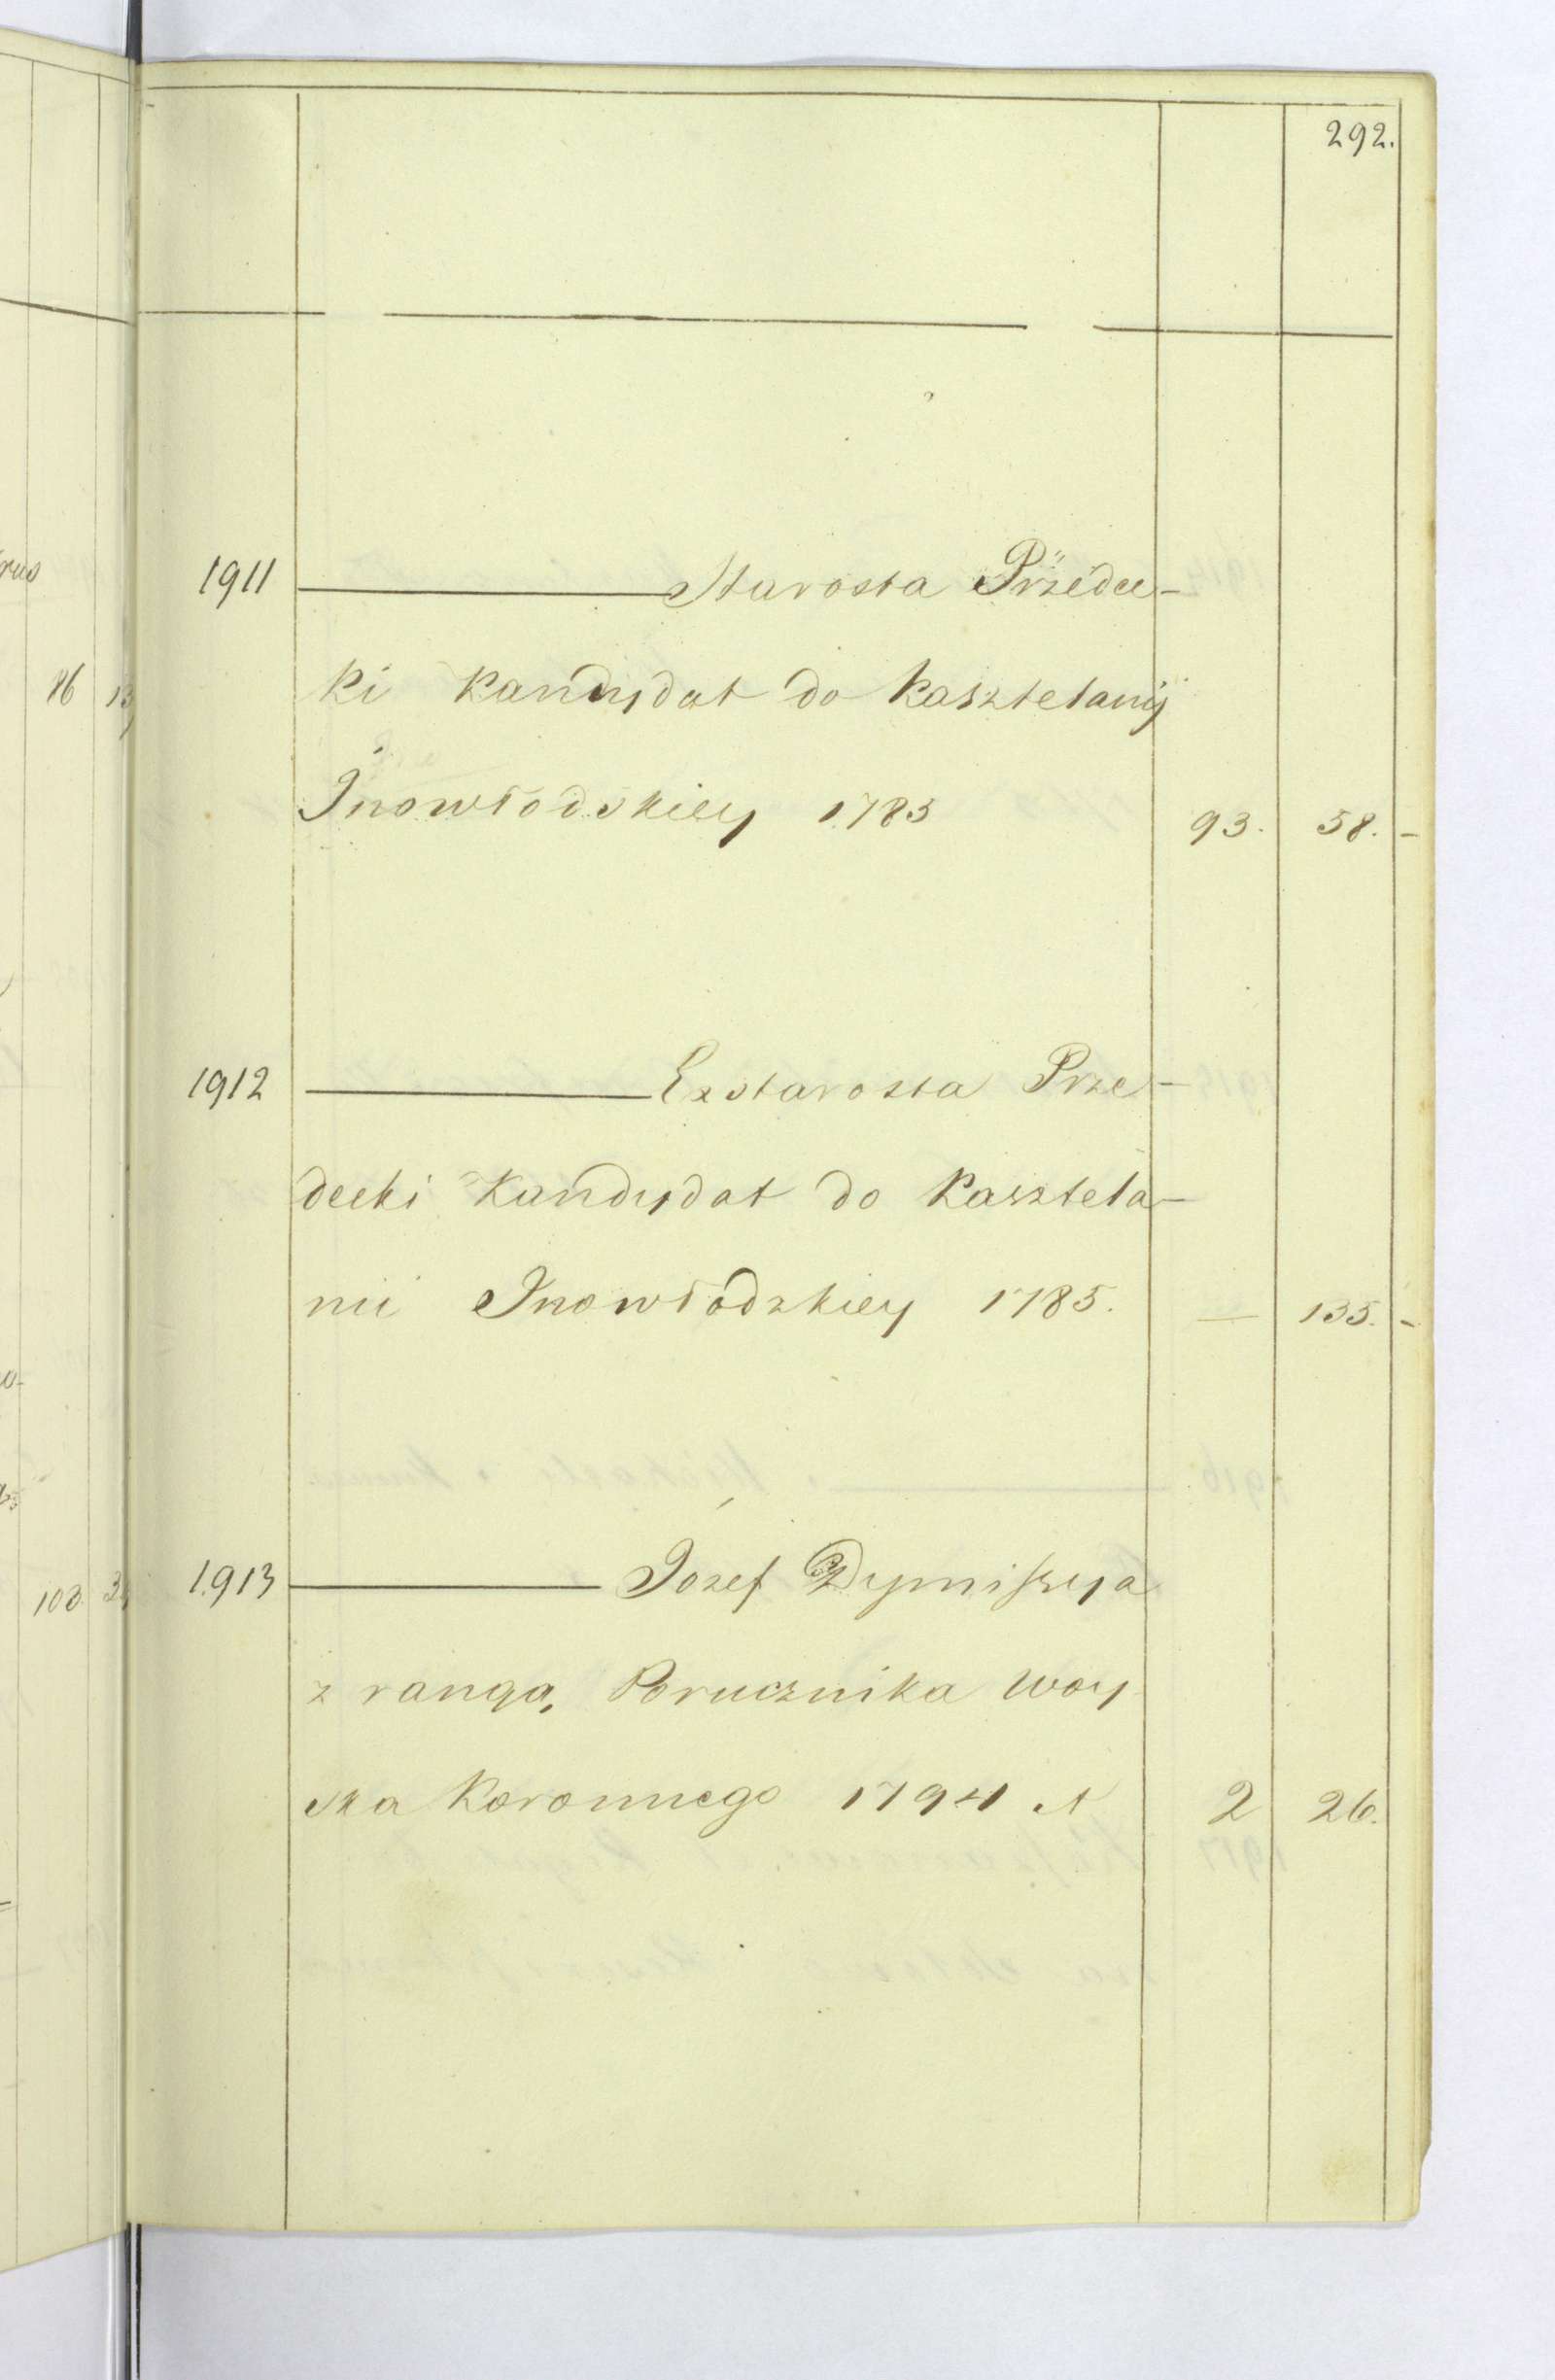 292.
1911 Starosta Przedec-
ki Kandydat do Kasztelanij
Inowłodskiey 1783 93. 58. -
1912 Exstarosta Prze-
decki Kandydat do Kasztela-
nii Inowłódzkiey 1785. — 135. -
1913 Jozef Dymiszya
z rangą Porucznika Woy
ska Koronnego 1794 2 26.
86 13
103